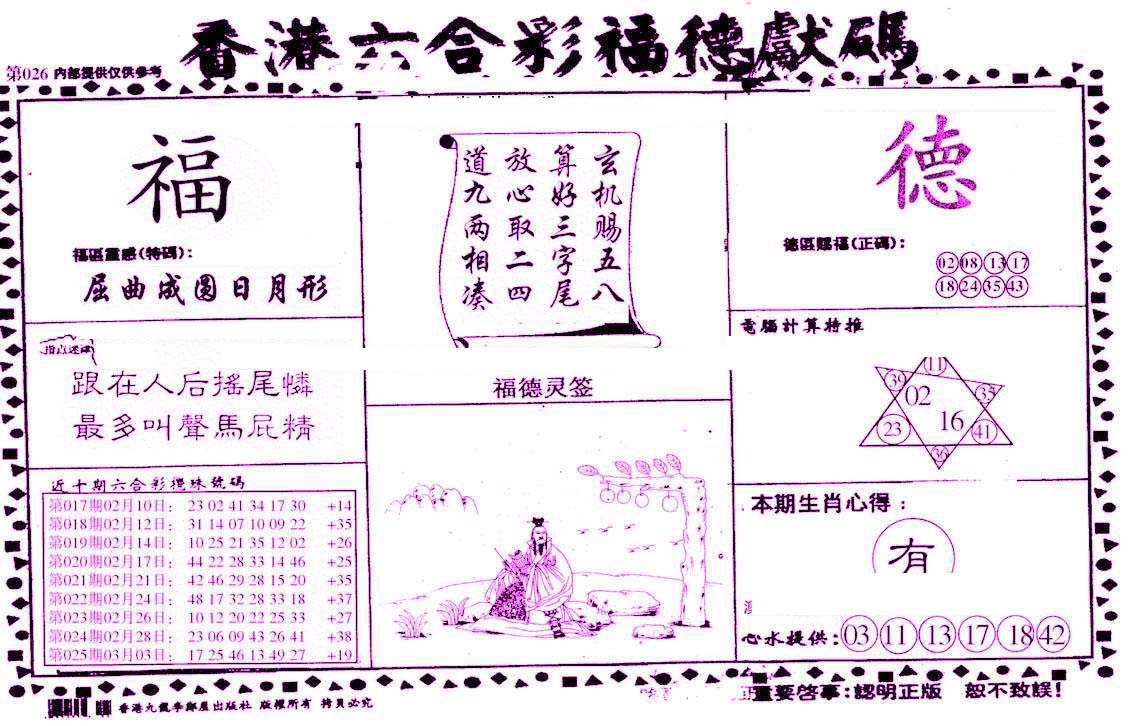 香港六合彩福德獻碼
第026 内部提供仅供参考
福
福區靈感(特碼):
屈曲成圓日月形
指点迷津
跟在人后搖尾憐
最多叫聲馬屁精
近十期六合彩攪珠號碼
第017期02月10日: 23 02 41 34 17 30 +14
第018期02月12日: 31 14 07 10 09 22 +35
第019期02月14日: 10 25 21 35 12 02 +26
第020期02月17日: 44 22 28 33 14 46 +25
第021期02月21日: 42 46 29 28 15 20 +35
第022期02月24日: 48 17 32 28 33 18 +37
第023期02月26日: 10 12 20 22 25 33 +27
第024期02月28日: 23 06 09 43 26 41 +38
第025期03月03日: 17 25 46 13 49 27 +19
玄机赐五八
算好三字尾
放心取二四
道九两相凑
福德灵签
德
德區賜福(正碼):
02 08 13 17
18 24 35 43
電腦計算特推
11
39 02 35
23 16 41
36
本期生肖心得:
有
心水提供:03 11 13 17 18 42
重要啓事:認明正版 恕不致誤!
香港九龍李鄭屋出版社 版權所有 拷貝必究